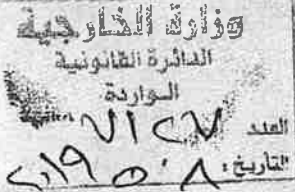 وزارة الخارجية
الدائرة القانونية
الواردة
العدد ٧١٢٧
التاريخ: ٢٠١٩/٥/٨